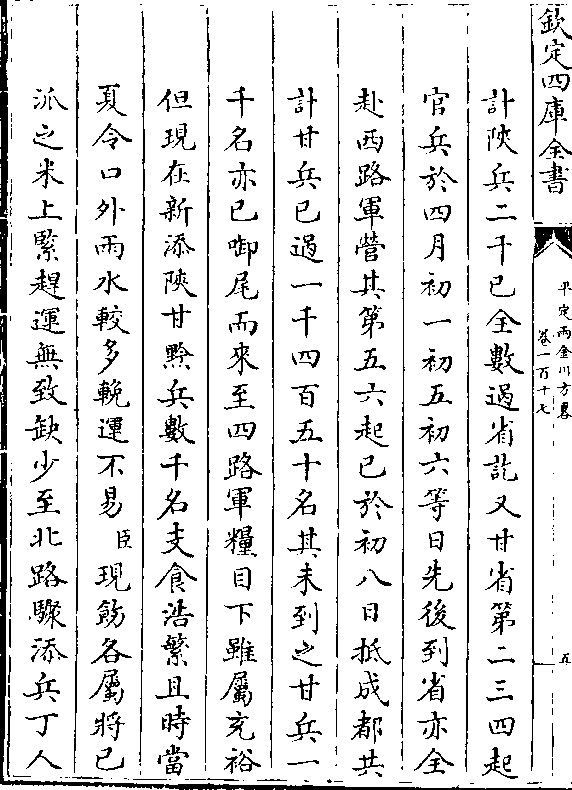 欽定四庫全書
平定兩金川方畧
卷一百十七
五
計陜兵二千已全數過省訖又甘省第二三四起
官兵於四月初一初五初六等日先後到省亦全
赴西路軍營其第五六起已於初八日抵成都共
計甘兵已過一千四百五十名其未到之甘兵一
千名亦已啣尾而來至四路軍糧目下雖屬充裕
但現在新添陜甘黔兵數千名支食浩繁且時當
夏令口外雨水較多輓運不易臣現飭各屬將已
派之米上緊趕運無致缺少至北路驟添兵丁人